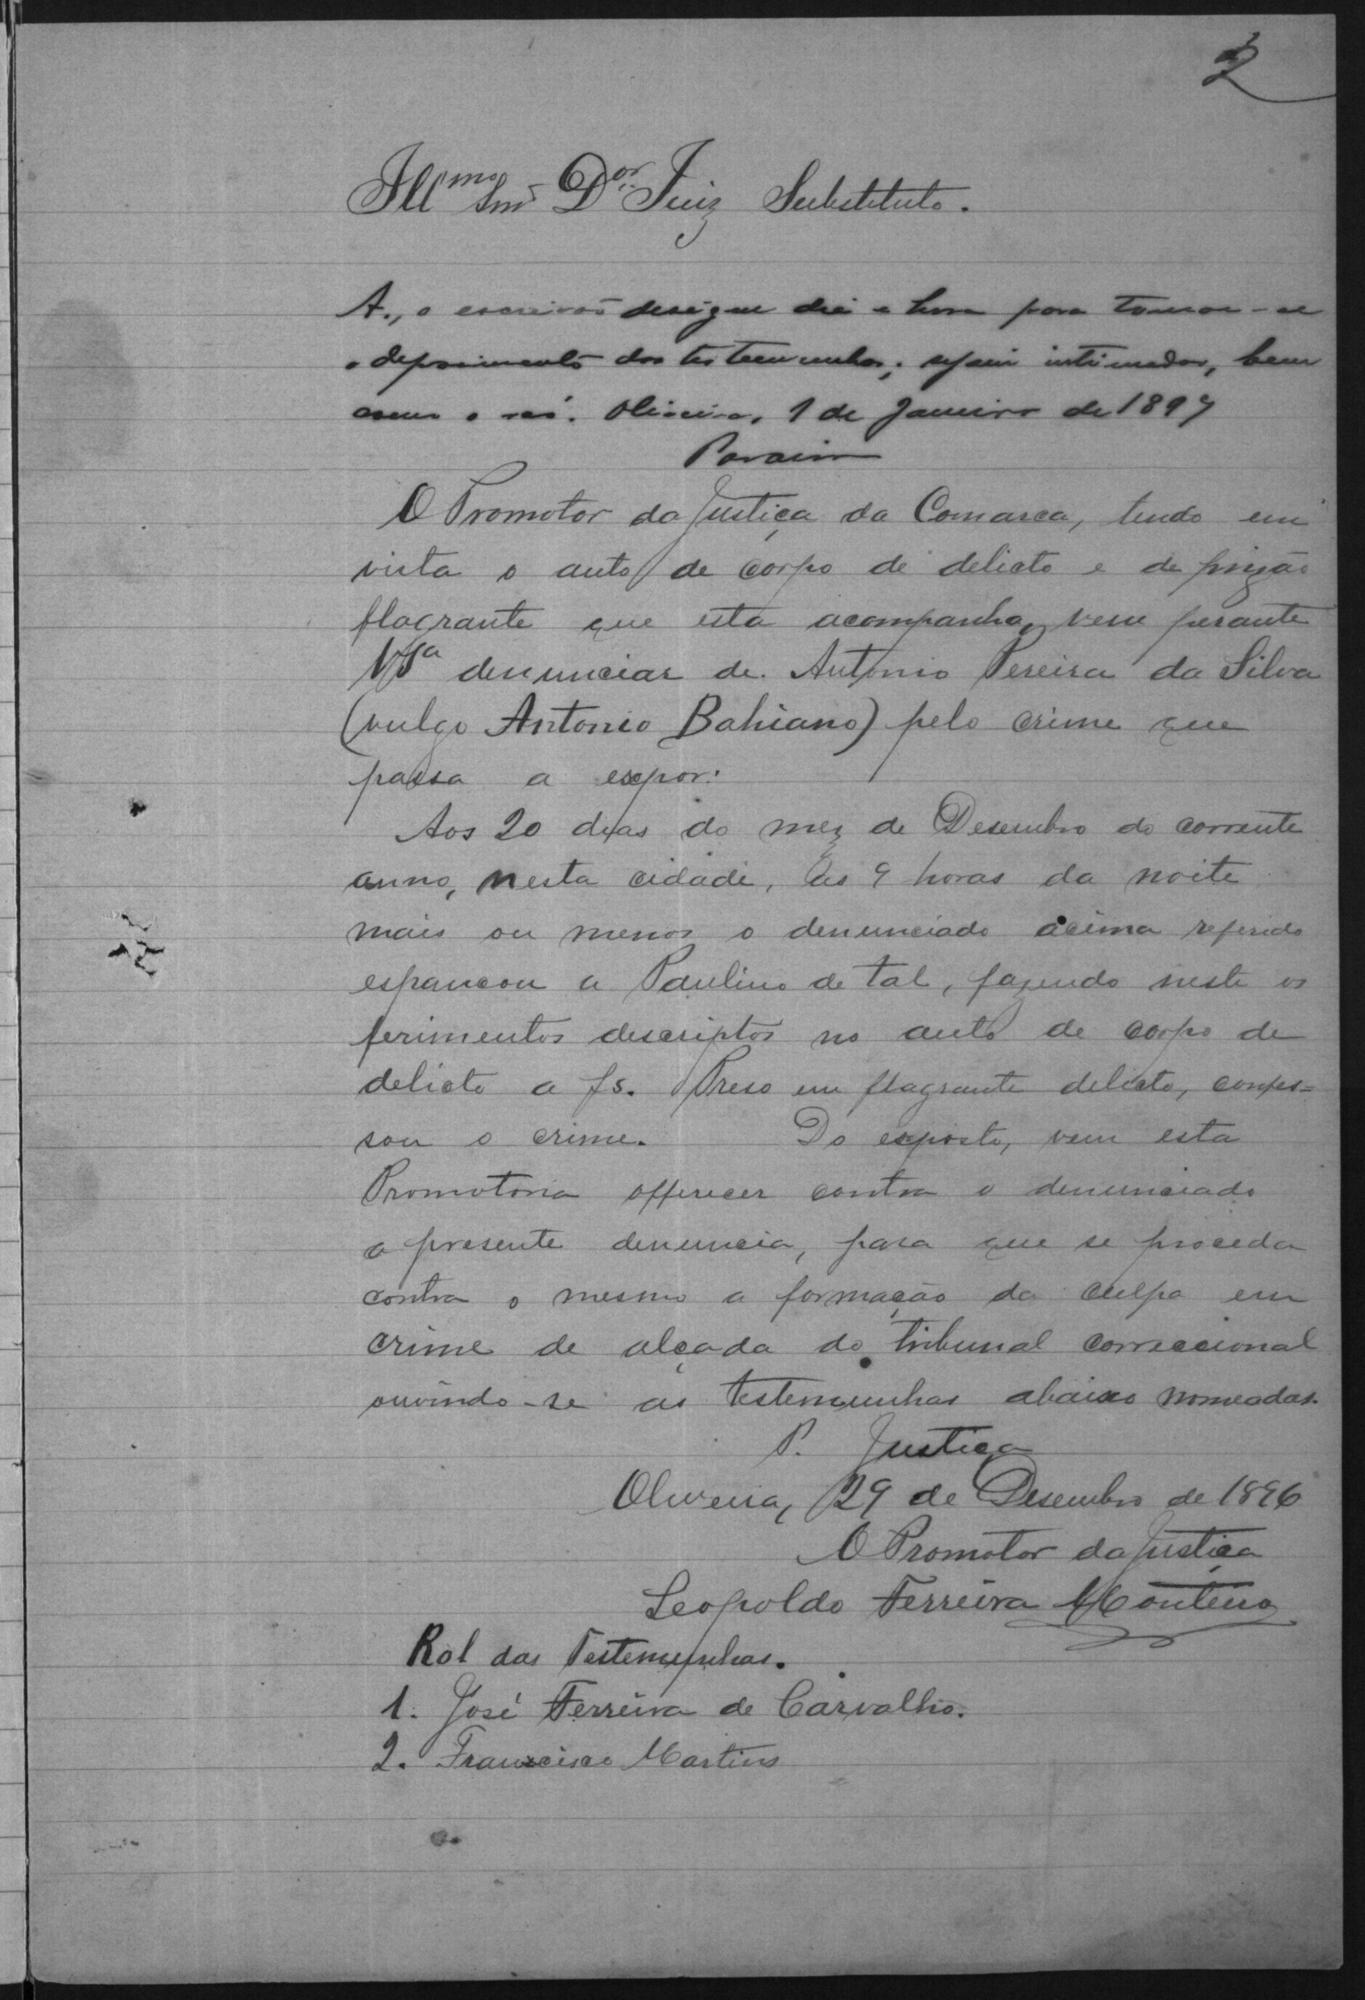 2
Illmo Snr Dor Juiz Substituto.
A., o escrivão designe dia e hora para tomar-se
o depoimento das testemunhas, sejam intimados, bem
como o réo. Oliveira, 1 de Janeiro de 1897
O Promotor da Justiça da Comarca, tendo em
vista o auto de corpo de delicto e de prizão
flagrante que esta acompanha, vem perante
VSa denunciar de Antonio Pereira da Silva
(vulgo Antonio Bahiano) pelo crime que
passa a expor:
Aos 20 dias do mez de Desembro do corrente
anno, nesta cidade, as 9 horas da noite
mais ou menos o denunciado acima referido
espancou a Paulino de tal, fazendo neste os
ferimentos descriptos no auto de corpo de
delicto a fs. Preso em flagrante delicto, confes=
sou o crime. Do exposto, vem esta
Promotoria offerecer contra o denunciado
a presente denuncia, para que se proceda
contra o mesmo a formação da culpa em
crime de alçada do tribunal correccional
ouvindo-se as testemunhas abaixo nomeadas.
P. Justiça
Oliveira, 29 de Desembro de 1896
O Promotor da Justiça
Leopoldo Ferreira Monteiro
Rol das Testemunhas.
1. José Ferreira de Carvalho.
2. Francisco Martins